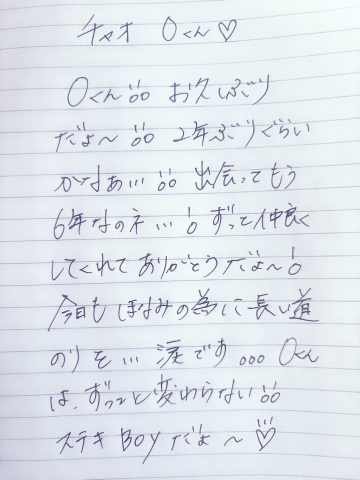 チャオ Oくん♡
Oくん!!! お久しぶり
だよ〜!! 2年ぶりぐらい
かなぁ...!! 出会ってもう
6年なのネ...! ずって仲良く
してくれてありがとうだよ〜!
今日もほなみの為に長い道
のりを... 涙です... Oくん
は、ずっと変わらない!!
ステキBOYだよ〜♡